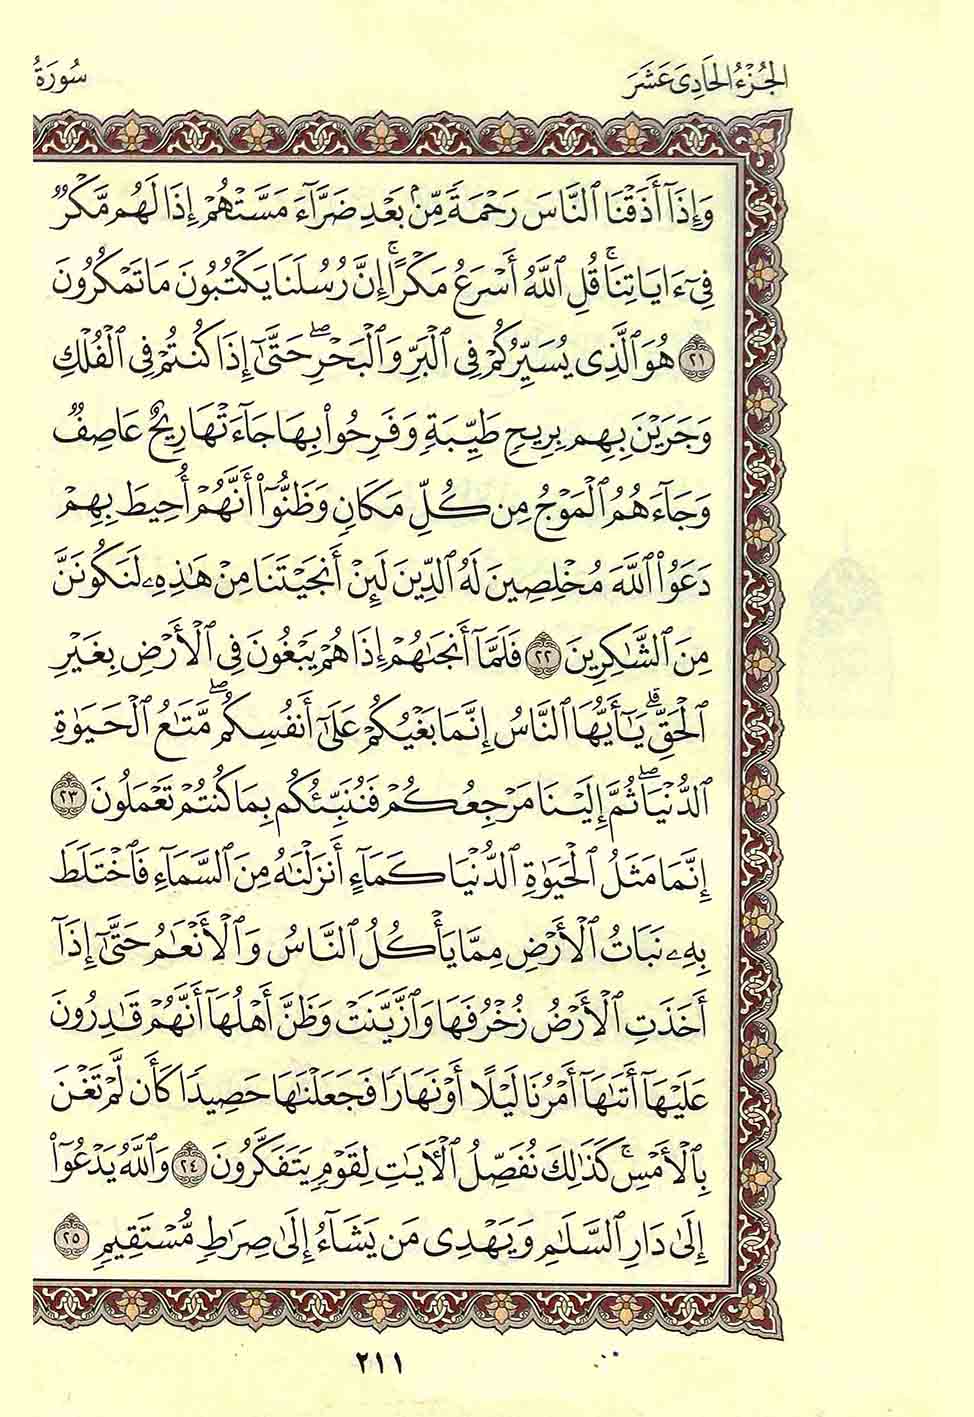 الجُزْءُ الحَادِىَ عَشَرَ
سُورَةُ
وَإِذَآ أَذَقْنَا ٱلنَّاسَ رَحْمَةً مِّنۢ بَعْدِ ضَرَّآءَ مَسَّتْهُمْ إِذَا لَهُم مَّكْرٌ
فِىٓ ءَايَاتِنَا ۚ قُلِ ٱللَّهُ أَسْرَعُ مَكْرًا ۚ إِنَّ رُسُلَنَا يَكْتُبُونَ مَا تَمْكُرُونَ
٢١ هُوَ ٱلَّذِى يُسَيِّرُكُمْ فِى ٱلْبَرِّ وَٱلْبَحْرِ ۖ حَتَّىٰٓ إِذَا كُنتُمْ فِى ٱلْفُلْكِ
وَجَرَيْنَ بِهِم بِرِيحٍ طَيِّبَةٍ وَفَرِحُوا۟ بِهَا جَآءَتْهَا رِيحٌ عَاصِفٌ
وَجَآءَهُمُ ٱلْمَوْجُ مِن كُلِّ مَكَانٍ وَظَنُّوٓا۟ أَنَّهُمْ أُحِيطَ بِهِمْ
دَعَوُا۟ ٱللَّهَ مُخْلِصِينَ لَهُ ٱلدِّينَ لَئِنْ أَنجَيْتَنَا مِنْ هَـٰذِهِۦ لَنَكُونَنَّ
مِنَ ٱلشَّـٰكِرِينَ ٢٢ فَلَمَّآ أَنجَىٰهُمْ إِذَا هُمْ يَبْغُونَ فِى ٱلْأَرْضِ بِغَيْرِ
ٱلْحَقِّ ۗ يَـٰٓأَيُّهَا ٱلنَّاسُ إِنَّمَا بَغْيُكُمْ عَلَىٰٓ أَنفُسِكُم ۖ مَّتَـٰعَ ٱلْحَيَوٰةِ
ٱلدُّنْيَا ۖ ثُمَّ إِلَيْنَا مَرْجِعُكُمْ فَنُنَبِّئُكُم بِمَا كُنتُمْ تَعْمَلُونَ ٢٣
إِنَّمَا مَثَلُ ٱلْحَيَوٰةِ ٱلدُّنْيَا كَمَآءٍ أَنزَلْنَـٰهُ مِنَ ٱلسَّمَآءِ فَٱخْتَلَطَ
بِهِۦ نَبَاتُ ٱلْأَرْضِ مِمَّا يَأْكُلُ ٱلنَّاسُ وَٱلْأَنْعَـٰمُ حَتَّىٰٓ إِذَآ
أَخَذَتِ ٱلْأَرْضُ زُخْرُفَهَا وَٱزَّيَّنَتْ وَظَنَّ أَهْلُهَآ أَنَّهُمْ قَـٰدِرُونَ
عَلَيْهَآ أَتَىٰهَآ أَمْرُنَا لَيْلًا أَوْ نَهَارًا فَجَعَلْنَـٰهَا حَصِيدًا كَأَن لَّمْ تَغْنَ
بِٱلْأَمْسِ ۚ كَذَٰلِكَ نُفَصِّلُ ٱلْـَٔايَـٰتِ لِقَوْمٍ يَتَفَكَّرُونَ ٢٤ وَٱللَّهُ يَدْعُوٓا۟
إِلَىٰ دَارِ ٱلسَّلَـٰمِ وَيَهْدِى مَن يَشَآءُ إِلَىٰ صِرَٰطٍ مُّسْتَقِيمٍ ٢٥
٢١١